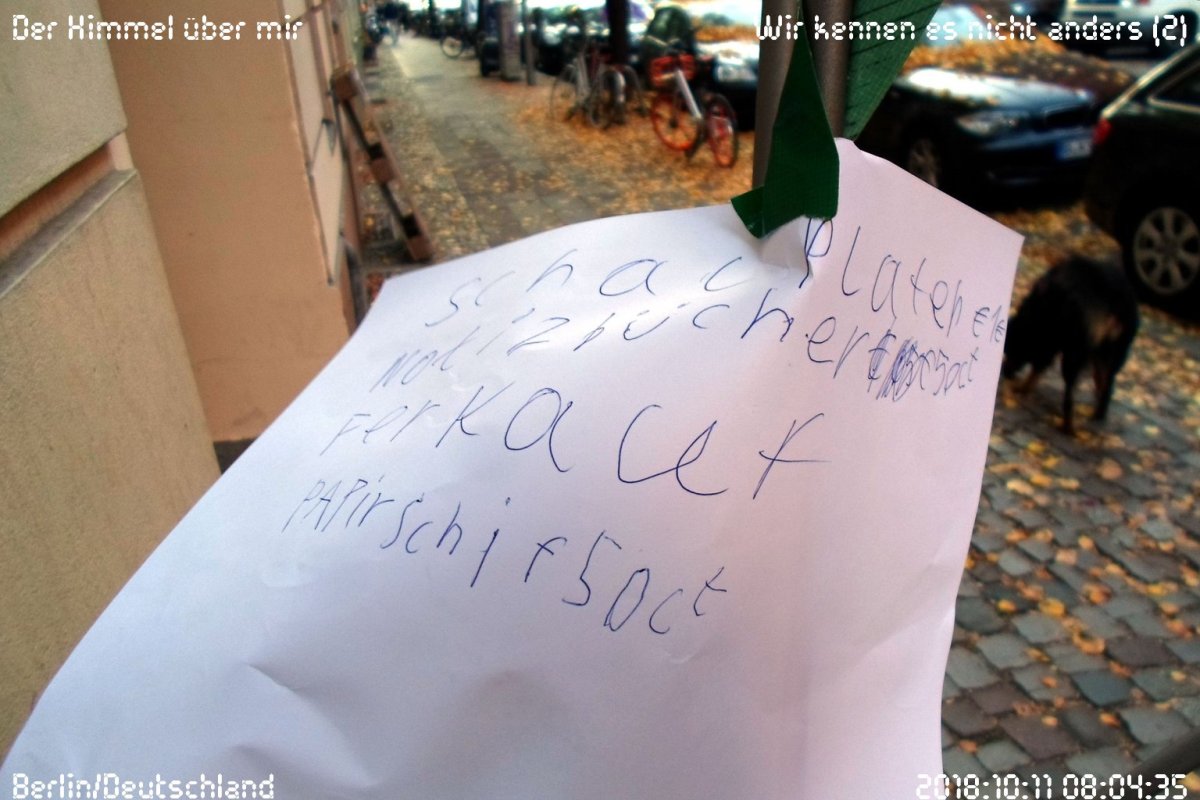 Der Himmel über mir
Wir kennen es nicht anders (2)
schal Platen €1€
notizbücher 50ct
Ferkauf
PAPirschif 50ct
Berlin/Deutschland
2018:10:11 08:04:35